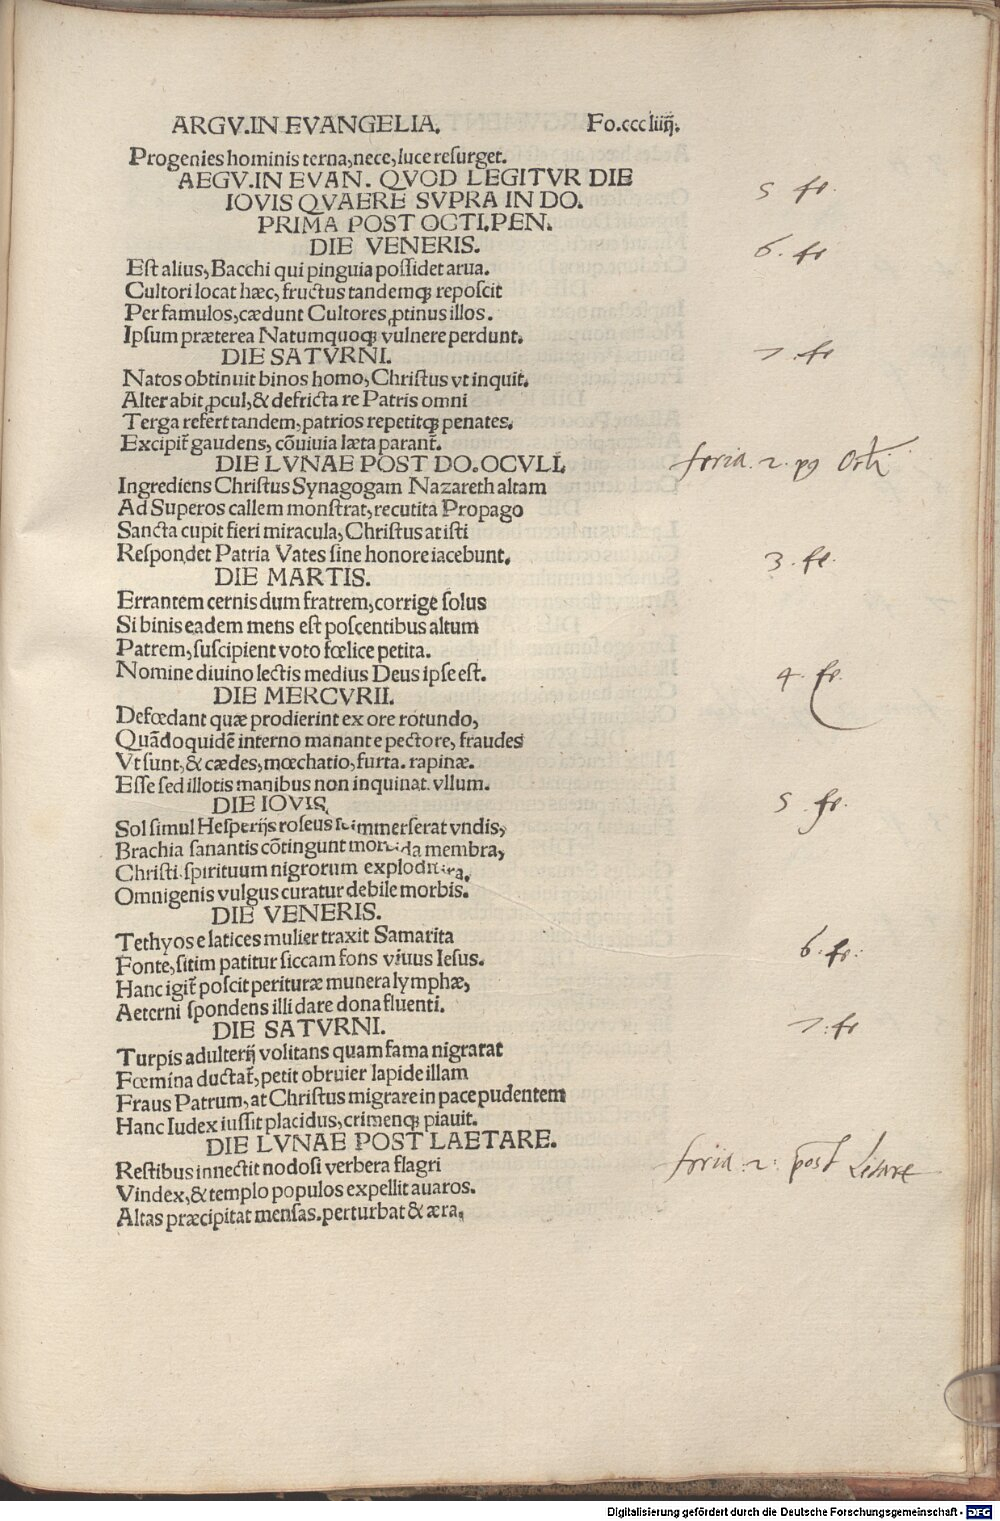 ARGV.IN EVANGELIA. Fo.cccliiij.
Progenies hominis terna, nece, luce resurget.
AEGV.IN EVAN. QVOD LEGITVR DIE
IOVIS QVAERE SVPRA IN DO.
PRIMA POST OCTI.PEN.
5 fe.
DIE VENERIS.
6. fe
Est alius, Bacchi qui pinguia possidet arua.
Cultori locat hæc, fructus tandemq; reposcit
Per famulos, cædunt Cultores ꝓtinus illos.
Ipsum præterea Natumquoq; vulnere perdunt.
DIE SATVRNI.
7. fe
Natos obtinuit binos homo, Christus vt inquit.
Alter abit ꝓcul, & defricta re Patris omni
Terga refert tandem, patrios repetitq; penates.
Excipit̃ gaudens, cõuiuia læta parant̃.
DIE LVNAE POST DO.OCVLI.
feria. 2. p9
Ingrediens Christus Synagogam Nazareth altam
Ad Superos callem monstrat, recutita Propago
Sancta cupit fieri miracula, Christus at isti
Respondet Patria Vates sine honore iacebunt.
3. fe.
DIE MARTIS.
Errantem cernis dum fratrem, corrige solus
Si binis eadem mens est poscentibus altum
Patrem, suscipient voto fœlice petita.
Nomine diuino lectis medius Deus ipse est.
4. fe.
DIE MERCVRII.
Defœdant quæ prodierint ex ore rotundo,
Quãdoquidẽ interno manante pectore, fraudes
Vt sunt, & cædes, mœchatio, furta. rapinæ.
Esse sed illotis manibus non inquinat vllum.
DIE IOVIS.
5. fe.
Sol simul Hesperijs roseus se immerserat vndis,
Brachia sanantis cõtingunt morbida membra,
Christi. spirituum nigrorum explodit
Omnigenis vulgus curatur debile morbis.
DIE VENERIS.
Tethyos e latices mulier traxit Samarita
6. fe.
Fonte, sitim patitur siccam fons viuus Iesus.
Hanc igit̃ poscit perituræ munera lymphæ,
Aeterni spondens illi dare dona fluenti.
DIE SATVRNI.
7. fe
Turpis adulterij volitans quam fama nigrarat
Fœmina ductat̃, petit obruier lapide illam
Fraus Patrum, at Christus migrare in pace pudentem
Hanc Iudex iussit placidus, crimenq; piauit.
DIE LVNAE POST LAETARE.
feria. 2. post Letare
Restibus innectit nodosi verbera flagri
Vindex, & templo populos expellit auaros.
Altas præcipitat mensas. perturbat & æra,
Digitalisierung gefördert durch die Deutsche Forschungsgemeinschaft - DFG